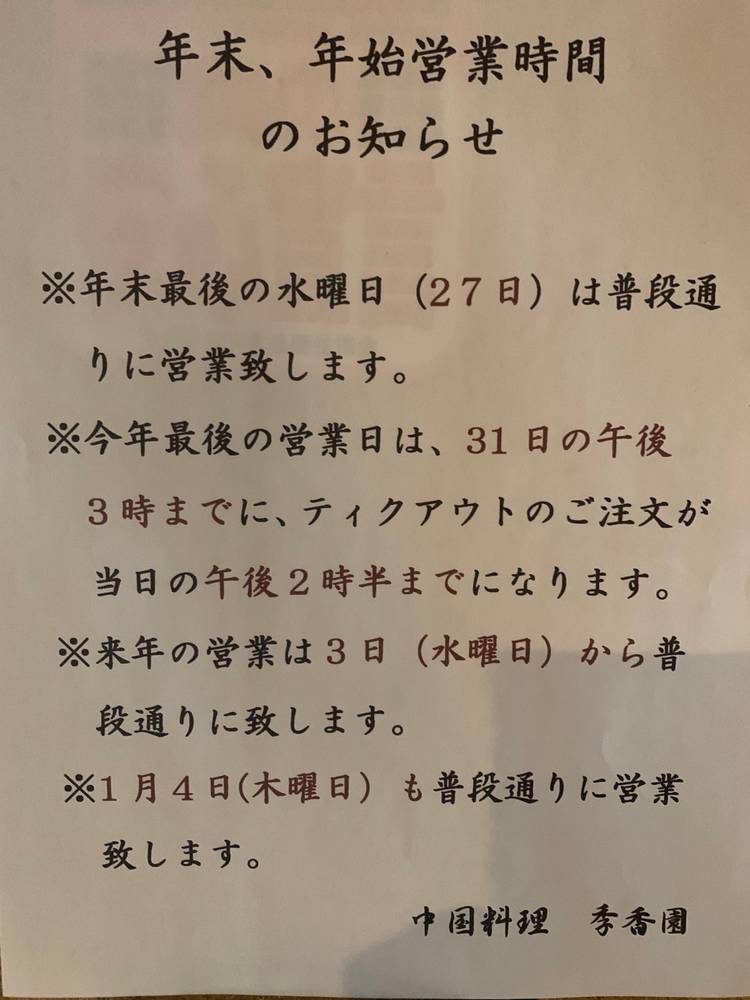 年末、年始営業時間
のお知らせ
※年末最後の水曜日（27日）は普段通
りに営業致します。
※今年最後の営業日は、31日の午後
3時までに、ティクアウトのご注文が
当日の午後2時半までになります。
※来年の営業は3日（水曜日）から普
段通りに致します。
※1月4日(木曜日）も普段通りに営業
致します。
中国料理　季香園